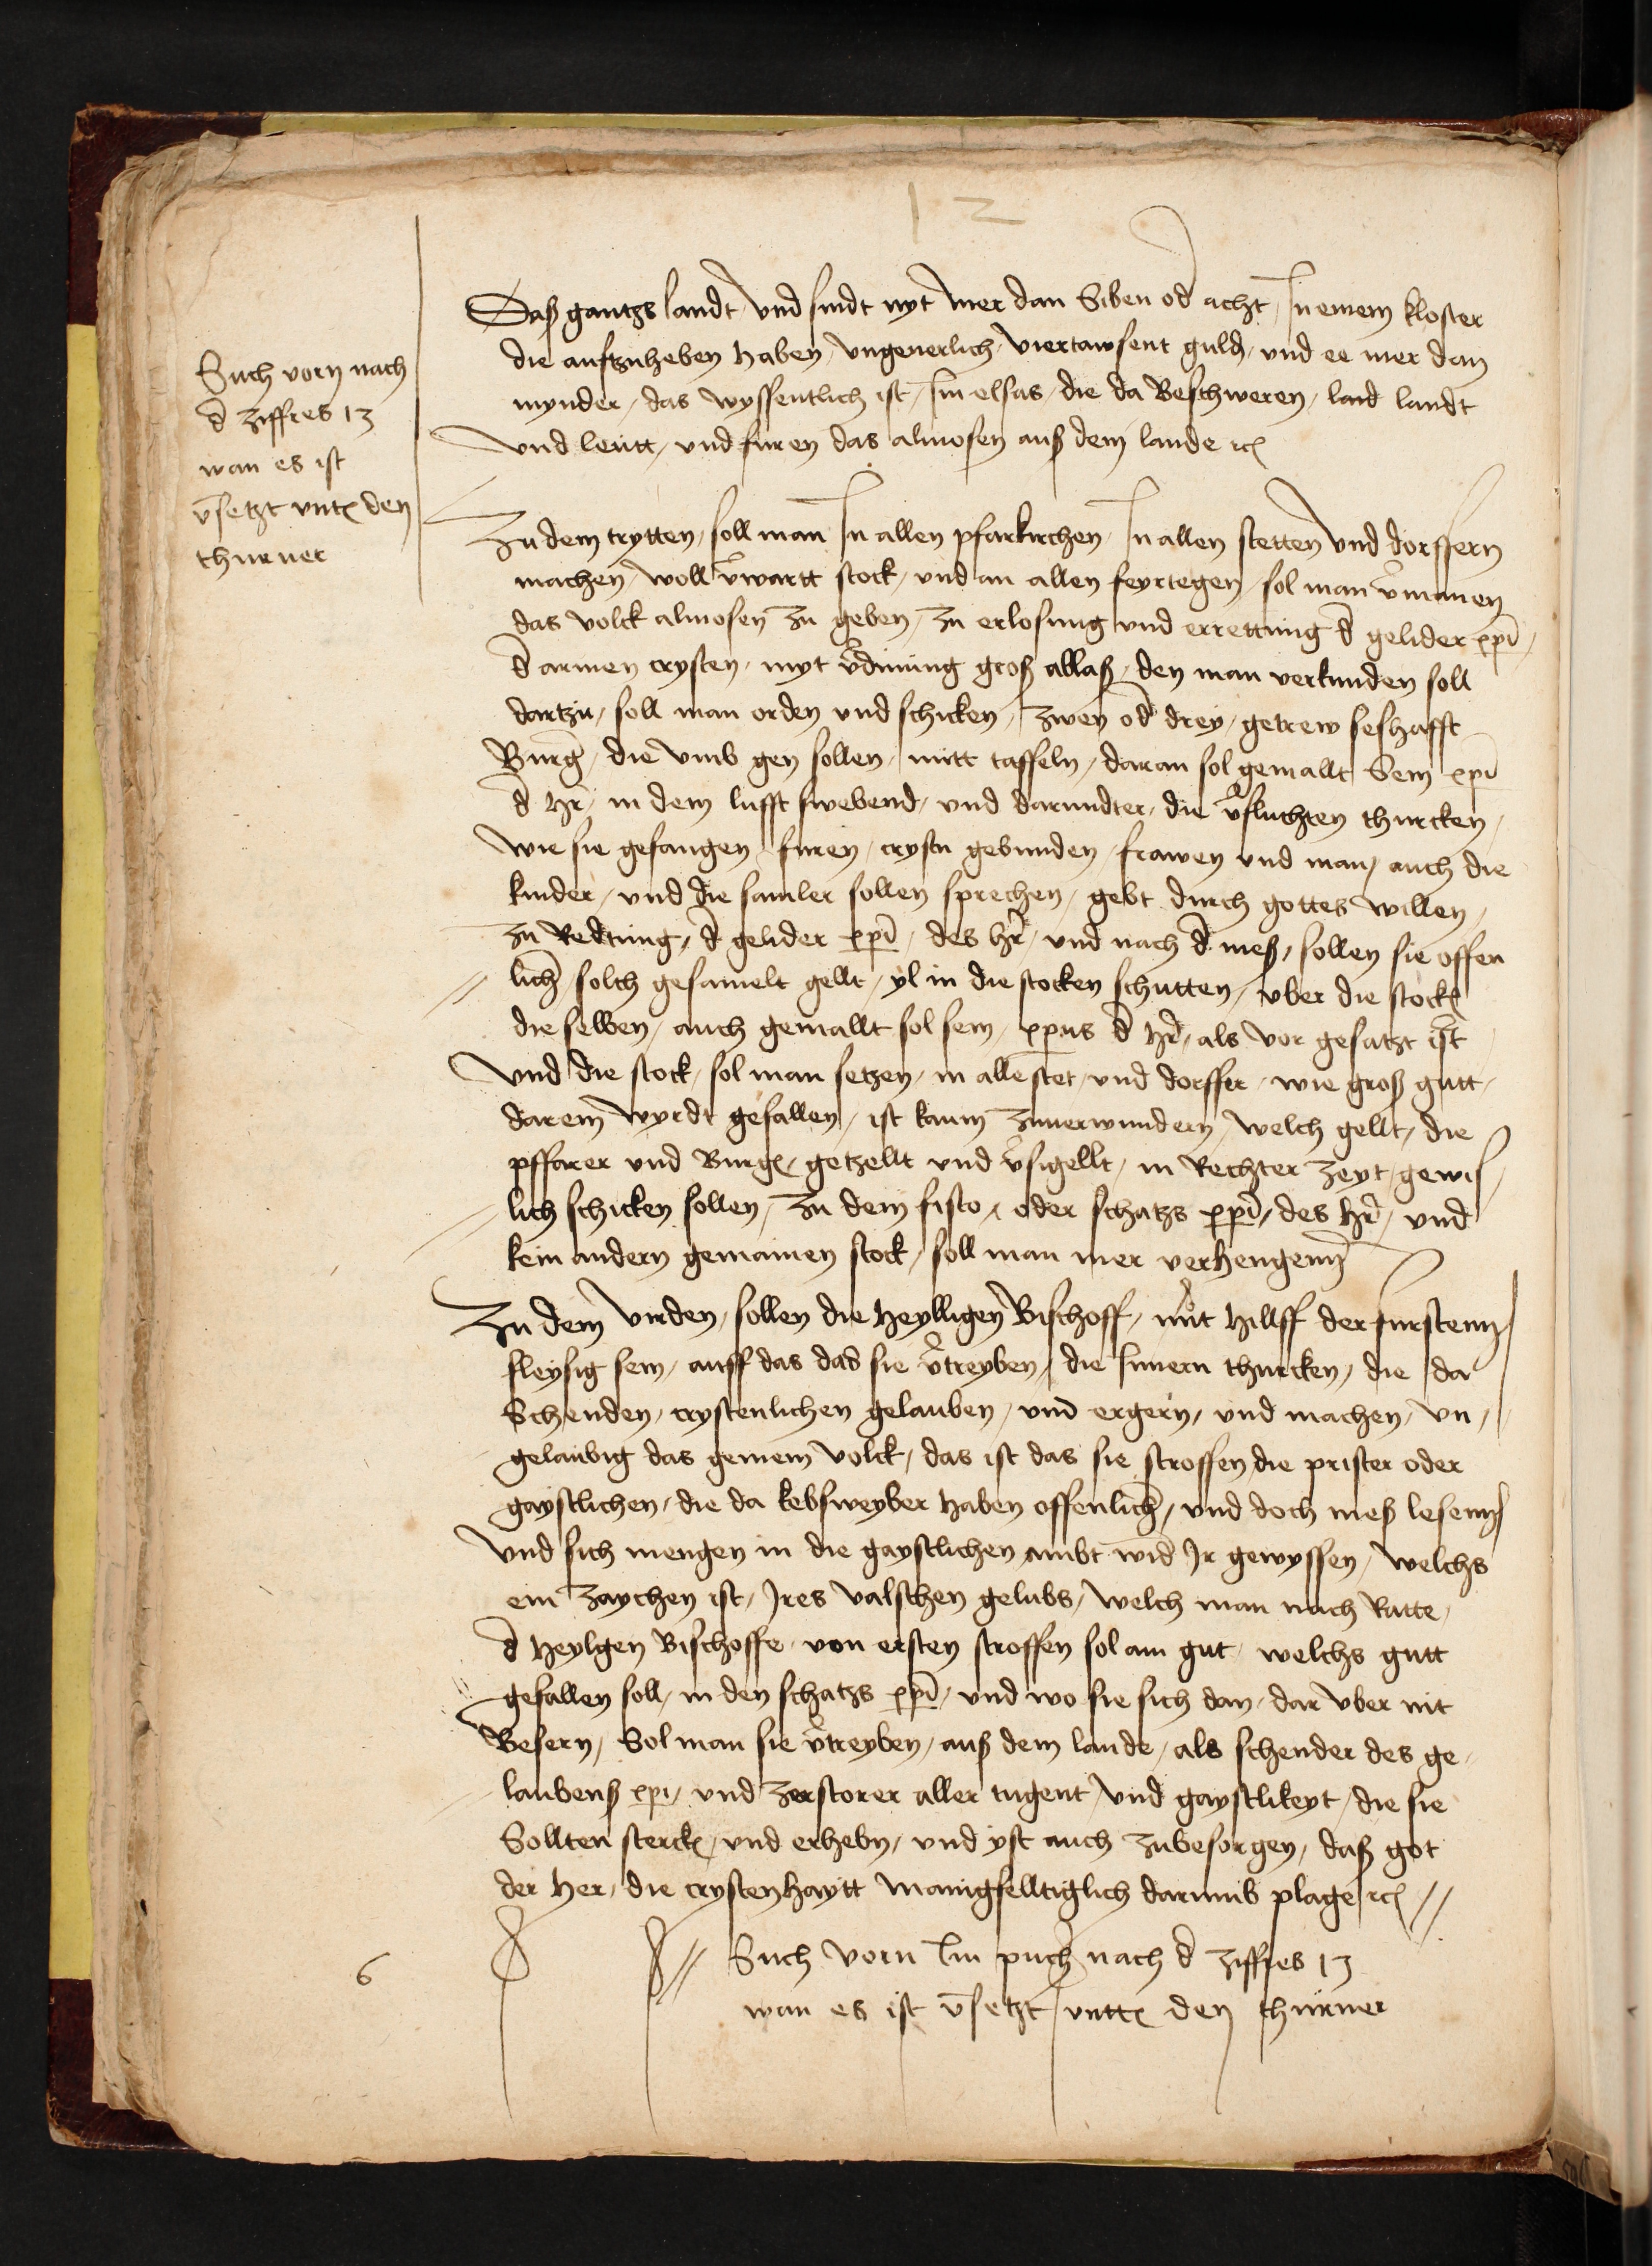 12
Such vorn nach
d ziffres 13
wan es ist
v̄setzt vnt den
thurner
Daß gantzs landt vnd sindt nyt mer dan Siben od acht In einem kloster
die auftzuheben haben vngeuerlich viertawsent guld, vnd ee mer dan
mynder, das wyssentlich ist, Im elsas, die da Beschweren, land landt
vnd leutt, vnd furen das almosen auß dem lande ꝛc
Zu dem trytten, soll man In allen pfarkirchen, In allen stetten vnd dorffern
machen, woll v̄wartt stock, vnd an allen feyrtegen, sol man v̄manen
das volck almosen zu geben, zu erlosung vnd errettung d gelider xp̄i,
d armen crysten, myt v̄dinung groß ablaß, den man verkunden soll
dartzu, soll man orden vnd schicken, zwen od drey, getrew seshafft
Burg, die vmb gen sollen, mitt taffeln, daran sol gemallt Sein xp̄i
d hr, in dem lufft swebend, vnd darundter, die v̄fluchten thurcken,
wie sie gefangen furen, crystn gebunden, frawen vnd man, auch die
kinder, vnd die samler sollen sprechen, gebt durch gottes willen,
zu Redtung, d gelider xp̄i, des hr, vnd nach d meß, sollen sie offen
lich, solch gesamelt gellt, yl in die stocken schutten, vber die stock
die selben, auch gemallt sol sein, xp̄us d hr, als vor gesatzt ist
vnd die stock, sol man setzen, in alle stet, vnd dorffer, wie groß gutt,
darein wyrdt gefallen, ist kaum zuuerwundern, welch gellt, die
pffarer vnd Burg, getzellt vnd v̄sigellt, in Rechter zeyt, gewis
lich schicken sollen, zu dem fisco, oder schatzs xp̄i, des hr, vnd
kein andern gemainen stock, soll man mer verhengenn
Zu dem virden, sollen die heylligen Bischoff, mit hillff der furstenn
fleysig sein, auff das das sie v̄treyben, die Innern thurcken, die da
Schenden, crystenlichen gelauben, vnd ergern, vnd machen, vn,
gelaubig das gemein volck, das ist das sie stroffen die prister oder
gaystlichen, die da kebsweyber haben offenlich, vnd doch meß lesenn
vnd sich mengen in die gaystlichen ambt wid Jr gewyssen, welchs
ein zaychen ist, Jres valschen gelubs, welch man nach Ratte,
d heylgen Bischoffe von ersten stroffen sol am gut, welchs gutt
gefallen soll, in den schatzs xp̄i, vnd wo sie sich dan, dar vber nit
Besern, Sol man sie v̄treyben, auß dem lande, als schender des ge
laubenß xpi, vnd zerstorer aller tugent vnd gaystlikeyt, die sie
Sollten sterck, vnd erhebn, vnd yst auch zubesorgen, daß got
der her, die crystenhaytt manigfelltiglich darumb plage ꝛc //
// Such vorn Im puch nach d ziffres 13
wan es ist v̄setzt vntt den thurner
6